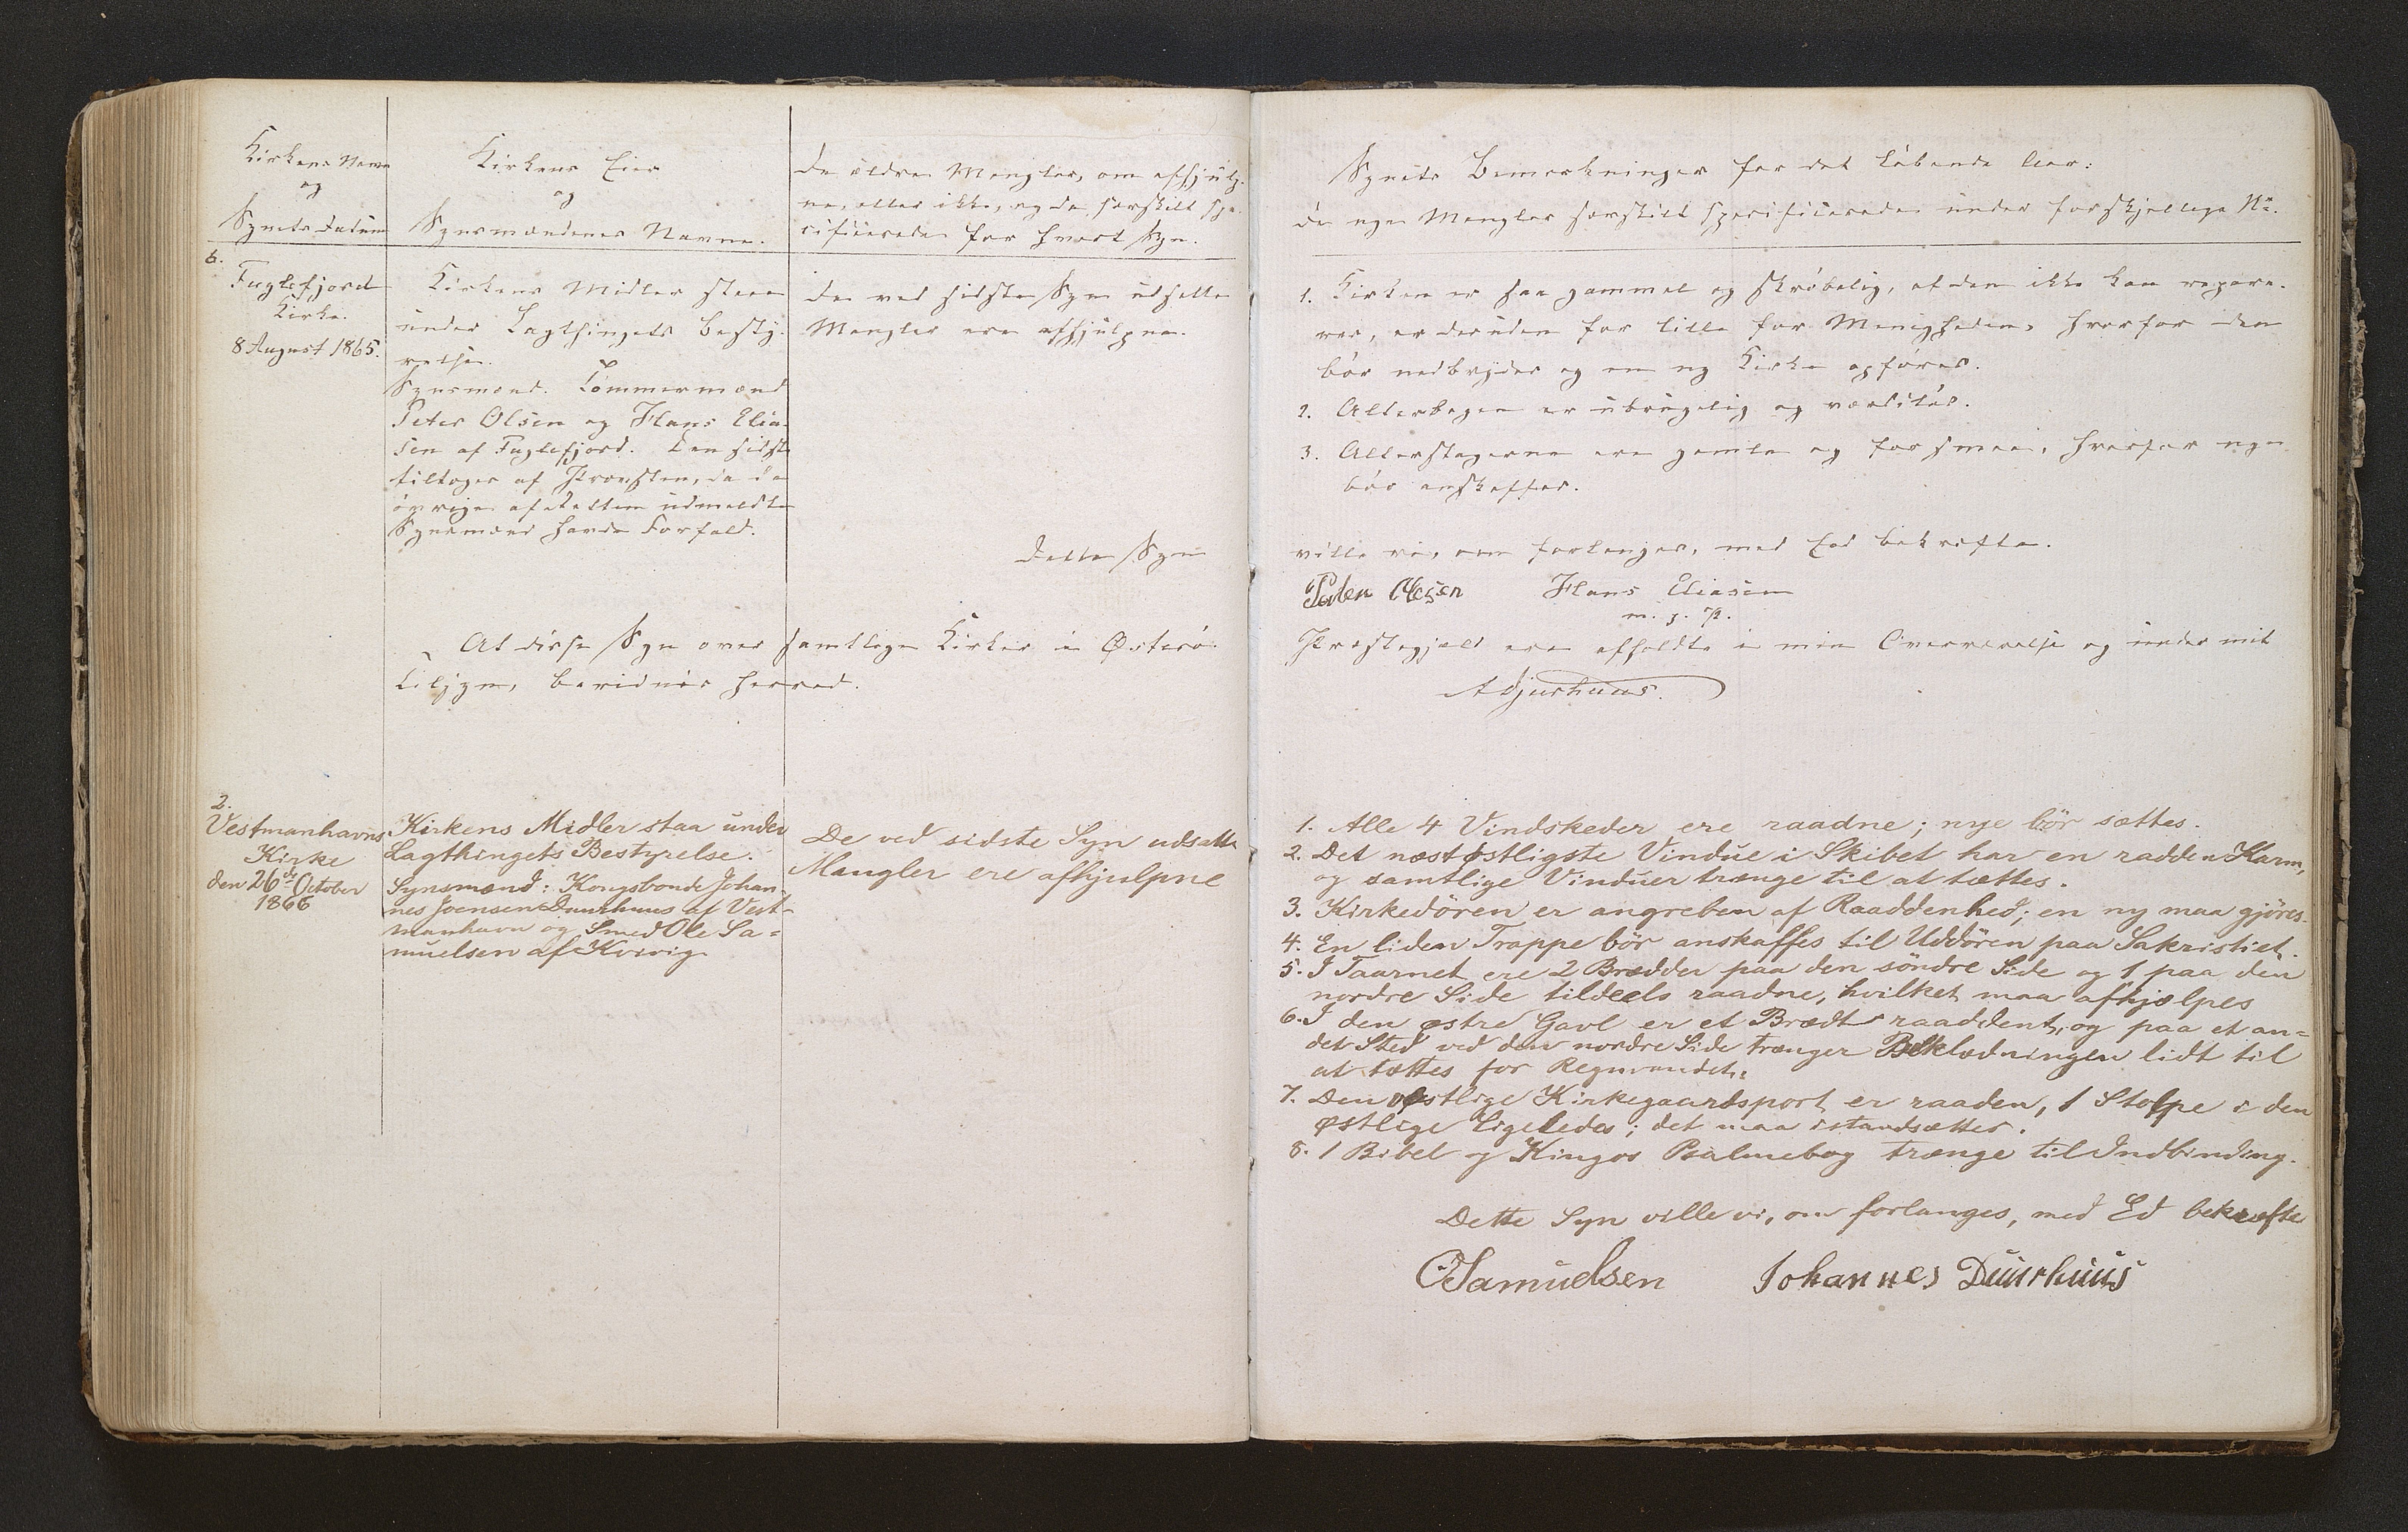 Kirkens Navn
og
Synets Datum
Kirkens Eier
og
Synsmændenes Navne.
De ældre Mangler, om afhjulp-
ne, eller ikke, og de særskilt spe-
cificerede for hvert Syn.
6.
Fuglefjord
Kirke.
8 August 1865.
Kirkens Midler staae
under Lagthingets Besty-
relse.
Synsmænd. Tømmermænd
Peter Olsen og Hans Elia-
sen af Fuglefjord. Den sidste
tiltages af Provsten, da de
øvrige af Retten udmeldte
Synsmænd havde Forfald.
De ved sidste Syn udsatte
Mangler ere afhjulpne.
Dette Syn
At disse Syn over samtlige Kirker i Østerø
Tillige, bevidnes herved.
2.
Vestmanhavns
Kirke
den 26de October
1866
Kirkens Midler staa under
Lagthingets Bestyrelse.
Synsmænd: Kongsbonde Johan-
nes Joensen Duurhuus af Vest-
manhavn og Smed Ole Sa=
muelsen af Kvivig.
De ved sidste Syn udsatte
Mangler ere afhjulpne
Synets Bemærkninger for det løbende Aar:
de nye Mangler særskilt specificerede under forskjellige No.
1. Kirken er saa gammel og skrøbelig, at den ikke kan repare-
res, er desuden for lille for Menigheden, hvorfor den
bør nedbrydes og en ny Kirke opføres.
2. Alterbogen er ubrugelig og værdiløs.
3. Alterstagerne ere gamle og for smaae, hvorfor nye
bør anskaffes.
ville vi, om forlanges, med Eed bekræfte.
Peter Olesen Hans Eliasen
m. f. P.
Præstegjæld ere afholdte i min Overværelse og under mit
A Djurhuus.
1. Alle 4 Vindskeder ere raadne; nye bör sættes.
2. Det næstøstligste Vindue i Skibet har en radden Karm,
og samtlige Vinduer trænge til at tættes.
3. Kirkedören er angreben af Raaddenhed; en ny maa gjöres.
4. En liden Trappe bör anskaffes til Uddören paa Sakristiet.
5. I Taarnet ere 2 Brædder paa den söndre Side og 1 paa den
nordre Side tildeels raadne, hvilket maa afhjælpes
6. I den østre Gavl er et Brædt raaddent, og paa et an=
det Sted ved den nordre Side trænger Beklædningen lidt til
at tættes for Regnvandet.
7. Den vestlige Kirkegaardsport er raaden, 1 Stolpe i den
østlige ligeledes; det maa istandsættes.
8. 1 Bibel og Kingos Psalmebog trænge til Indbinding.
Dette Syn ville vi, om forlanges, med Ed bekræfte
OSamuelsen Johannes Duurhuus